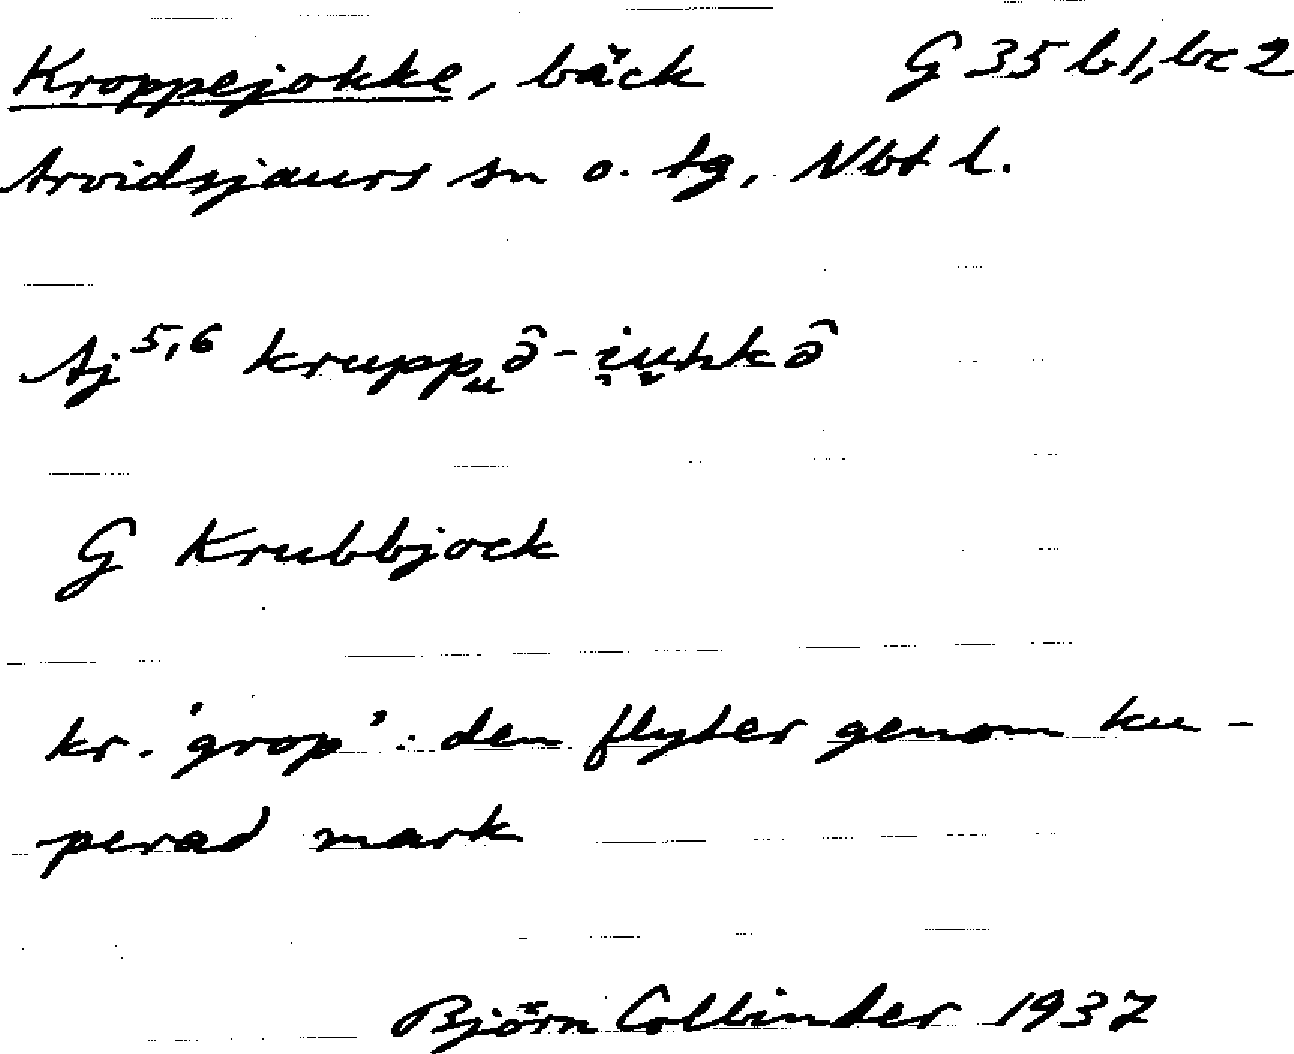 Kroppejokke, bäck G 35 b1, bc 2
Arvidsjaurs sn o. tg, Nbt l.
Aj 5,6 kruppᵤə̂-i̯u̯hkə̂
G Krubbjock
kr. 'grop': den flyter genom ku-
perad mark
Björn Collinder 1937